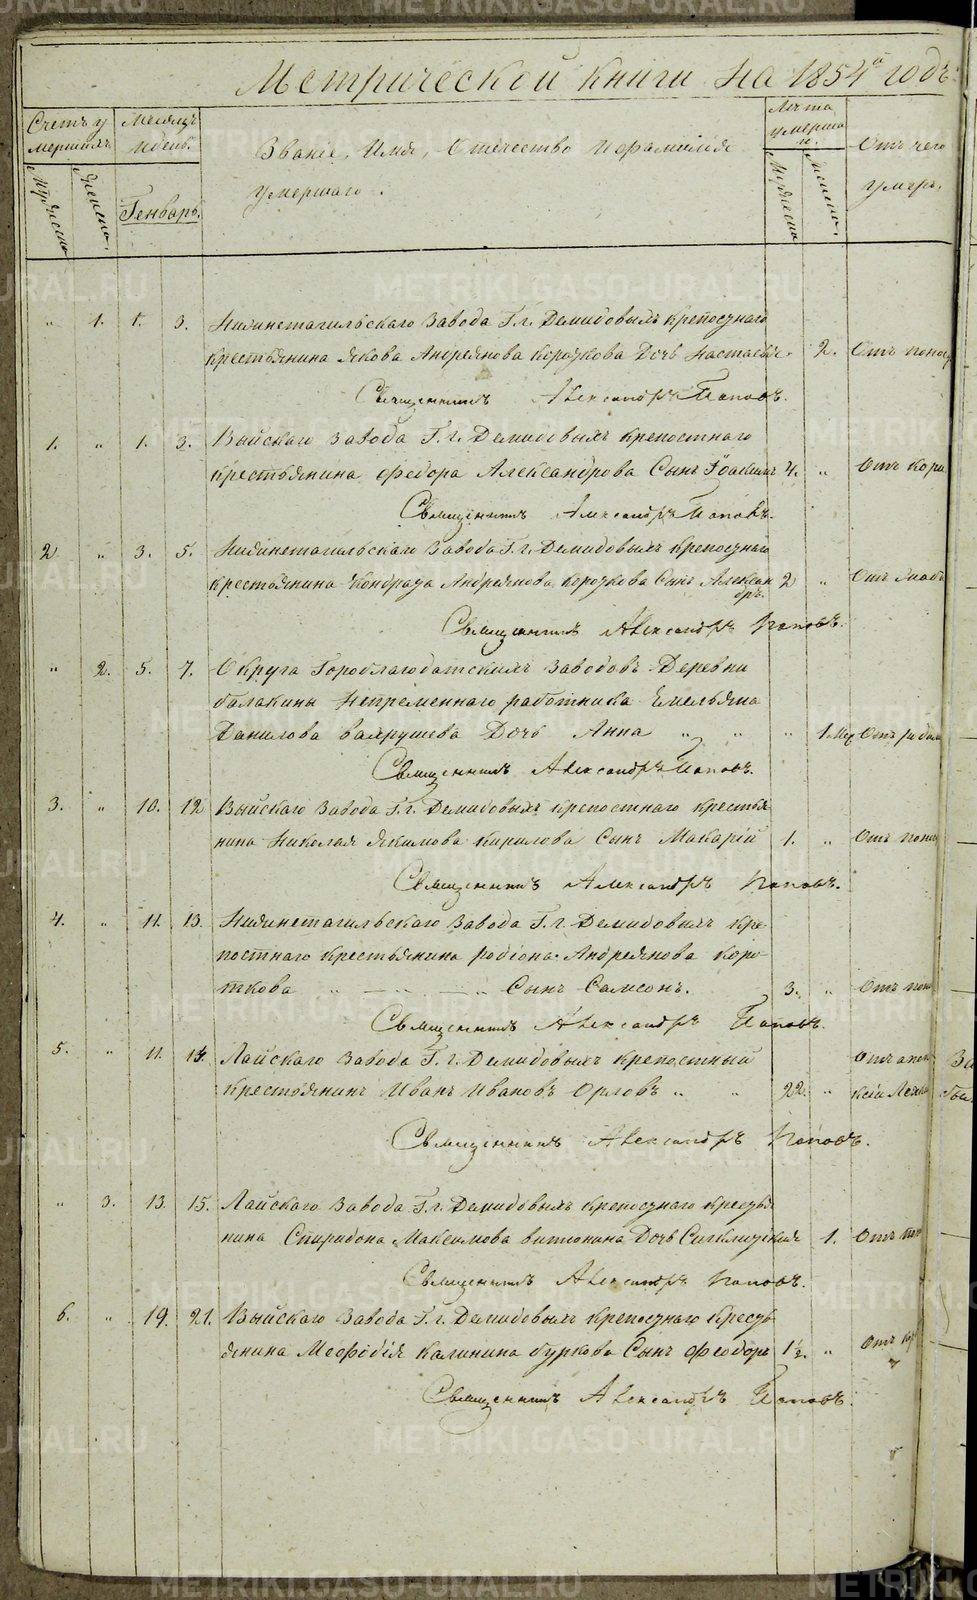 Метрической книги на 1854й годъ.
Счетъ у
мершихъ
Месяцъ
и день.
Званіе, Имя, Отечество и фамилія
умершаго.
Лѣта
умерша
го.
Отъ чего
умеръ.
Мужеска
Женска.
Генварь.
Мужеска
Женска.
„ 1. 1. 3. Нижнетагильскаго Завода Г.г. Демидовыхъ крепостнаго
крестьянина Якова Андреянова Короткова Дочь Настасья. 2. Отъ понос
Священникъ Александръ Поповъ.
1. „ 1. 3. Выйскаго Завода Г.г. Демидовыхъ крепостнаго
крестьянина Федора Александрова Сынъ Іоакимъ 4. „ Отъ кори
Священникъ Александръ Поповъ.
2 „ 3. 5. Нижнетагильскаго Завода Г.г. Демидовыхъ крепостнаго
крестьянина Кондрата Андреянова Короткова Сынъ Алексан 2 „ Отъ слаб
дръ.
Священникъ Александръ Поповъ.
„ 2. 5. 7. Округа Гороблагодатскихъ Заводовъ Деревни
балакины Непременнаго работника Емельяна
Данилова вахрушева Дочь Анна „ „ „ 1 мес Отъ родим
Священникъ Александръ Поповъ.
3. „ 10. 12 Выйскаго Завода Г.г. Демидовыхъ крепостнаго крестья
нина Николая Якимова Кирилова Сынъ Макарій 1. „ Отъ поно
Священникъ Александръ Поповъ.
4. „ 11. 13. Нижнетагильскаго Завода Г.г. Демидовыхъ кре
постнаго крестьянина родіона Андреянова коро-
ткова „ — „ — „ Сынъ Самсонъ. 3. „ Отъ поно
Священникъ Александръ Поповъ.
5. „ 11. 14. Лайскаго Завода Г.г. Демидовыхъ крепостный Отъ апоп
крестьянинъ Иванъ Ивановъ Орловъ „ „ 22. „
Священникъ Александръ Поповъ.
„ 3. 13. 15. Лайскаго Завода Г.г. Демидовыхъ крепостнаго крестья
нина Спиридона Максимова витюнина Дочь Сигклитикия 1. Отъ
Священникъ Александръ Поповъ.
6. „ 19. 21. Выйскаго Завода Г.г. Демидовыхъ крепостнаго кресть
янина Мефодія Калинина буркова Сынъ Феодоръ 1½. „ Отъ
Священникъ Александръ Поповъ.
METRIKI.GASO-URAL.RU